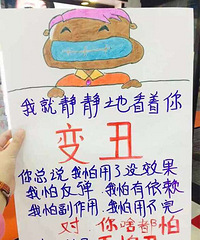 我就静静地看着你
变丑
你总说我怕用了没效果
我怕反弹.我怕有依赖
我怕副作用.我怕用不完
对 你啥都怕